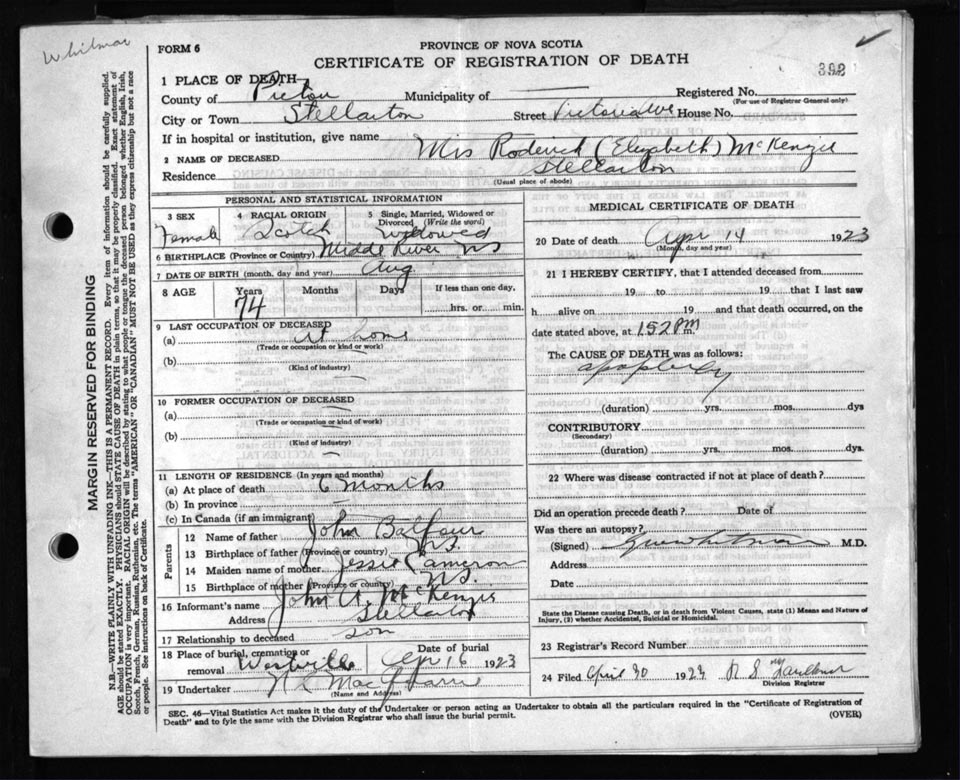 Whitman
FORM 6
PROVINCE OF NOVA SCOTIA
CERTIFICATE OF REGISTRATION OF DEATH
392
1 PLACE OF DEATH
County of Pictou Municipality of — Registered No.
(For use of Registrar General only)
City or Town Stellarton Street Victoria Ave House No.
If in hospital or institution, give name
2 NAME OF DECEASED Mrs Roderick (Elizabeth) McKenzie
Residence Stellarton
(Usual place of abode)
PERSONAL AND STATISTICAL INFORMATION
3 SEX Female
4 RACIAL ORIGIN Scotch
5 Single, Married, Widowed or Divorced (Write the word) Widowed
6 BIRTHPLACE (Province or Country) Middle River NS
7 DATE OF BIRTH (month, day and year) Aug
8 AGE Years Months Days If less than one day,
74 hrs. or min.
9 LAST OCCUPATION OF DECEASED
(a) At home
(Trade or occupation or kind or work)
(b)
(Kind of industry)
10 FORMER OCCUPATION OF DECEASED
(a)
(Trade or occupation or kind of work)
(b)
(Kind of industry)
11 LENGTH OF RESIDENCE (In years and months)
(a) At place of death 6 months
(b) In province
(c) In Canada (if an immigrant)
Parents
12 Name of father John Balfour
13 Birthplace of father (Province or country) NS.
14 Maiden name of mother Jessie Cameron
15 Birthplace of mother (Province or country) NS.
16 Informant's name John A McKenzie
Address Stellarton
17 Relationship to deceased son
18 Place of burial, cremation or removal Westville Date of burial Apr 16 1923
19 Undertaker
(Name and Address)
MEDICAL CERTIFICATE OF DEATH
20 Date of death Apr 14 1923
(Month, day and year)
21 I HEREBY CERTIFY, that I attended deceased from
19 to 19 that I last saw
h alive on 19 and that death occurred, on the
date stated above, at 1.52 P m.
The CAUSE OF DEATH was as follows:
apoplexy
(duration) yrs. mos. dys
CONTRIBUTORY
(Secondary)
(duration) yrs. mos. dys
22 Where was disease contracted if not at place of death?
Did an operation precede death? Date of
Was there an autopsy?
(Signed) Whitman M.D.
Address
Date
State the Disease causing Death, or in death from Violent Causes, state (1) Means and Nature of
Injury, (2) whether Accidental, Suicidal or Homicidal.
23 Registrar's Record Number
24 Filed April 30 1923 R S
Division Registrar
SEC. 46—Vital Statistics Act makes it the duty of the Undertaker or person acting as Undertaker to obtain all the particulars required in the "Certificate of Registration of
Death" and to fyle the same with the Division Registrar who shall issue the burial permit.
(OVER)
MARGIN RESERVED FOR BINDING
N.B.—WRITE PLAINLY WITH UNFADING INK—THIS IS A PERMANENT RECORD. Every item of information should be carefully supplied.
AGE should be stated EXACTLY. PHYSICIANS should STATE CAUSE OF DEATH in plain terms, so that it may be properly classified. Exact statement of
OCCUPATION is very important. RACIAL ORIGIN will be described by stating to what people or tongue the deceased person belonged whether English, Irish,
Scotch, French, German, Russian, Ruthenian, etc. The terms "AMERICAN" OR "CANADIAN" MUST NOT BE USED as they express citizenship but not a race
or people. See instructions on back of Certificate.